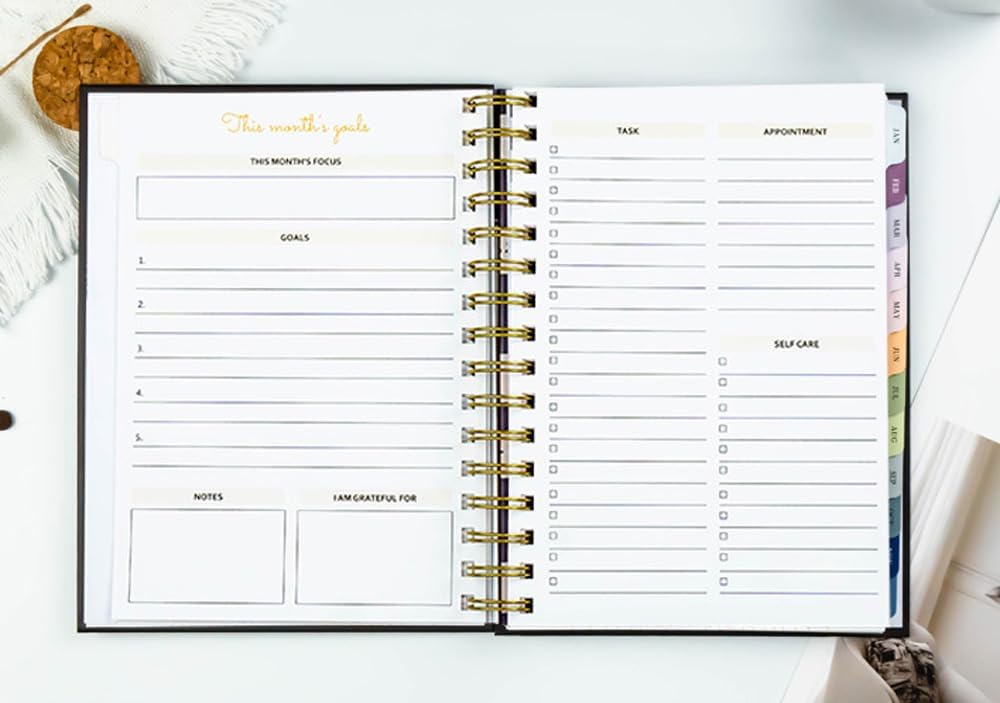 This month's goals
THIS MONTH'S FOCUS
GOALS
1.
2.
3.
4.
5.
NOTES
I AM GRATEFUL FOR
TASK
APPOINTMENT
SELF CARE
JAN
FEB
MAR
APR
MAY
JUN
JUL
AUG
SEP
OCT